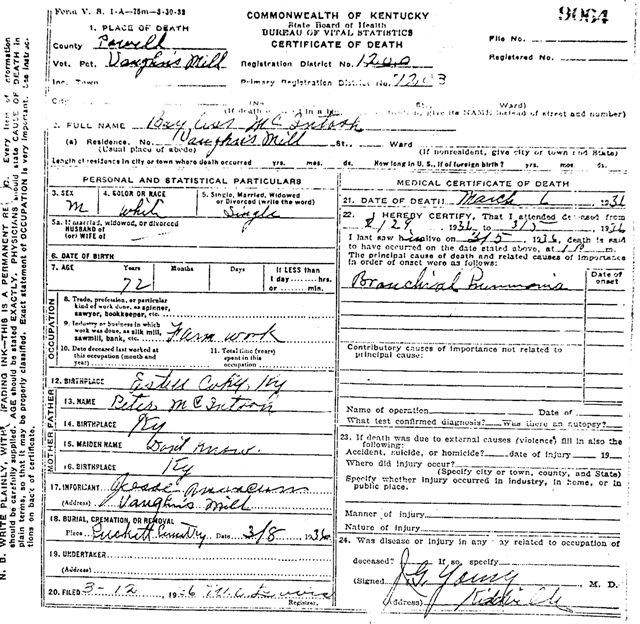 Form V. S. 1-A-75m-3-30-33
COMMONWEALTH OF KENTUCKY
State Board of Health
BUREAU OF VITAL STATISTICS
CERTIFICATE OF DEATH
9064
File No.
Registered No.
1. PLACE OF DEATH
County Powell
Vot. Pct. Vaughn's Mill
Registration District No. 1200
Inc. Town
Primary Registration District No. 1203
City
St. Ward)
give its NAME instead of street and number)
2. FULL NAME McIntosh
(a) Residence. No. Vaughn's Mill St., Ward
(Usual place of abode) (If nonresident, give city or town and State)
Length of residence in city or town where death occurred yrs. mos. ds. How long in U. S., if of foreign birth? yrs. mos. ds.
PERSONAL AND STATISTICAL PARTICULARS
3. SEX
M
4. COLOR OR RACE
White
5. Single, Married, Widowed
or Divorced (write the word)
Single
5a. If married, widowed, or divorced
HUSBAND of
(or) WIFE of
6. DATE OF BIRTH
7. AGE Years Months Days If LESS than
1 day hrs.
or min.
72
OCCUPATION
8. Trade, profession, or particular
kind of work done, as spinner,
sawyer, bookkeeper, etc.
9. Industry or business in which
work was done, as silk mill,
sawmill, bank, etc.
Farm work
10. Date deceased last worked at
this occupation (month and
year)
11. Total time (years)
spent in this
occupation
12. BIRTHPLACE Estell Ky
FATHER
13. NAME Peter McIntosh
14. BIRTHPLACE Ky
MOTHER
15. MAIDEN NAME Don't Know
16. BIRTHPLACE Ky
17. INFORMANT Jesse
(Address) Vaughn's Mill
18. BURIAL, CREMATION, OR REMOVAL
Place Puckett Cemetry Date 3/8 1936
19. UNDERTAKER
(Address)
20. FILED 3-12 1936
Registrar.
MEDICAL CERTIFICATE OF DEATH
21. DATE OF DEATH March 6 1936
22. I HEREBY CERTIFY, That I attended deceased from
1936 to 3/5 1936
I last saw him alive on 3/5 1936, death is said
to have occurred on the date stated above, at m.
The principal cause of death and related causes of importance
in order of onset were as follows:
Date of
onset
Bronchial Pneumonia
Contributory causes of importance not related to
principal cause:
Name of operation Date of
What test confirmed diagnosis? Was there an autopsy?
23. If death was due to external causes (violence) fill in also the
following:
Accident, suicide, or homicide? date of injury 19
Where did injury occur?
(Specify city or town, county, and State)
Specify whether injury occurred in industry, in home, or in
public place.
Manner of injury
Nature of injury
24. Was disease or injury in any way related to occupation of
deceased? If so, specify
(Signed J.G. Young M. D.
(Address)
N. B. WRITE PLAINLY, WITH UNFADING INK—THIS IS A PERMANENT RECORD. Every item of information
should be carefully supplied. AGE should be stated EXACTLY. PHYSICIANS should state CAUSE OF DEATH in
plain terms, so that it may be properly classified. Exact statement of OCCUPATION is very important. See instruc-
tions on back of certificate.